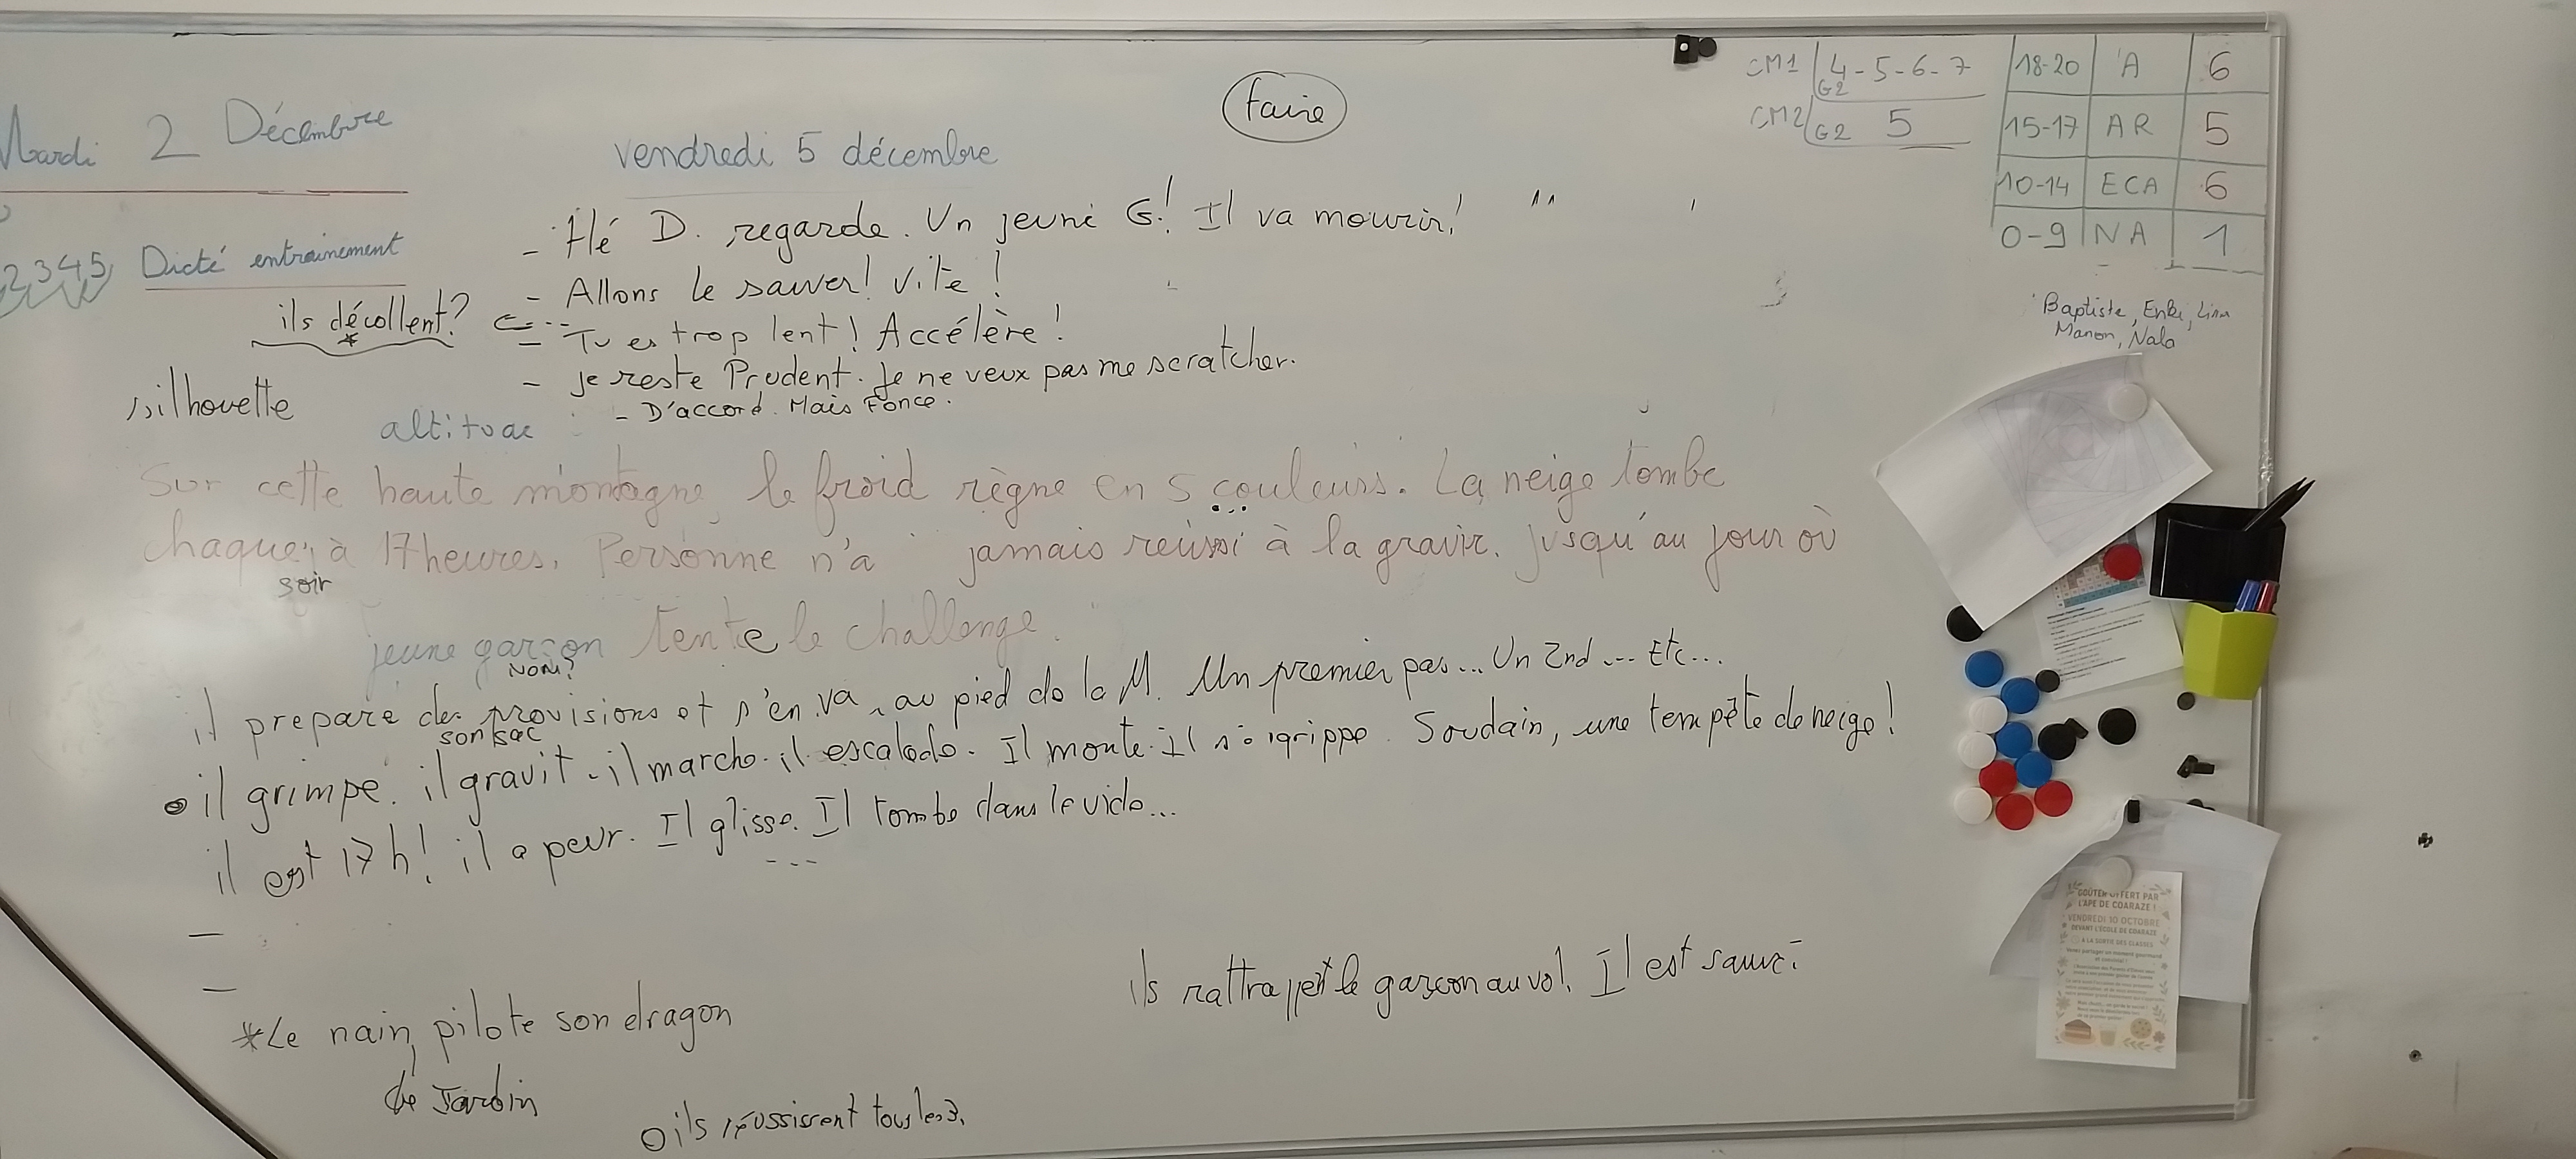 Mardi 2 Décembre
2,3,4,5, Dicté entrainement
ils décollent?
*
silhouette
altitude
faire
vendredi 5 décembre
- Hé D. regarde. Un jeune G! Il va mourir!
- Allons le sauver! Vite!
- Tu es trop lent! Accélère!
- je reste Prudent. Je ne veux pas me scratcher.
- D'accord. Mais Fonce.
Sur cette haute montagne, le froid règne en 5 couleurs. La neige tombe
chaque à 17 heures. Personne n'a jamais réussi à la gravir. Jusqu'au jour où
soir
jeune garçon tente le challenge.
NOM?
il prepare des provisions et s'en va au pied de la M. Un premier pas... Un 2nd... Etc...
son sac
il grimpe. il gravit. il marche. il escalade. Il monte. Il s'agrippe. Soudain, une tempête de neige!
il est 17h! il a peur. Il glisse. Il tombe dans le vide...
-
-
*Le nain pilote son dragon
de Jardin
ils réussissent tous les 3.
ils rattrapent le garçon au vol. Il est sauvé.
CM1 G2 4-5-6-7
CM2 G2 5
18-20 A 6
15-17 AR 5
10-14 ECA 6
0-9 NA 1
Baptiste, Enki, Lina
Manon, Nala
GOÛTER OFFERT PAR
L'APE DE COARAZE !
VENDREDI 10 OCTOBRE
DEVANT L'ÉCOLE DE COARAZE
À LA SORTIE DES CLASSES